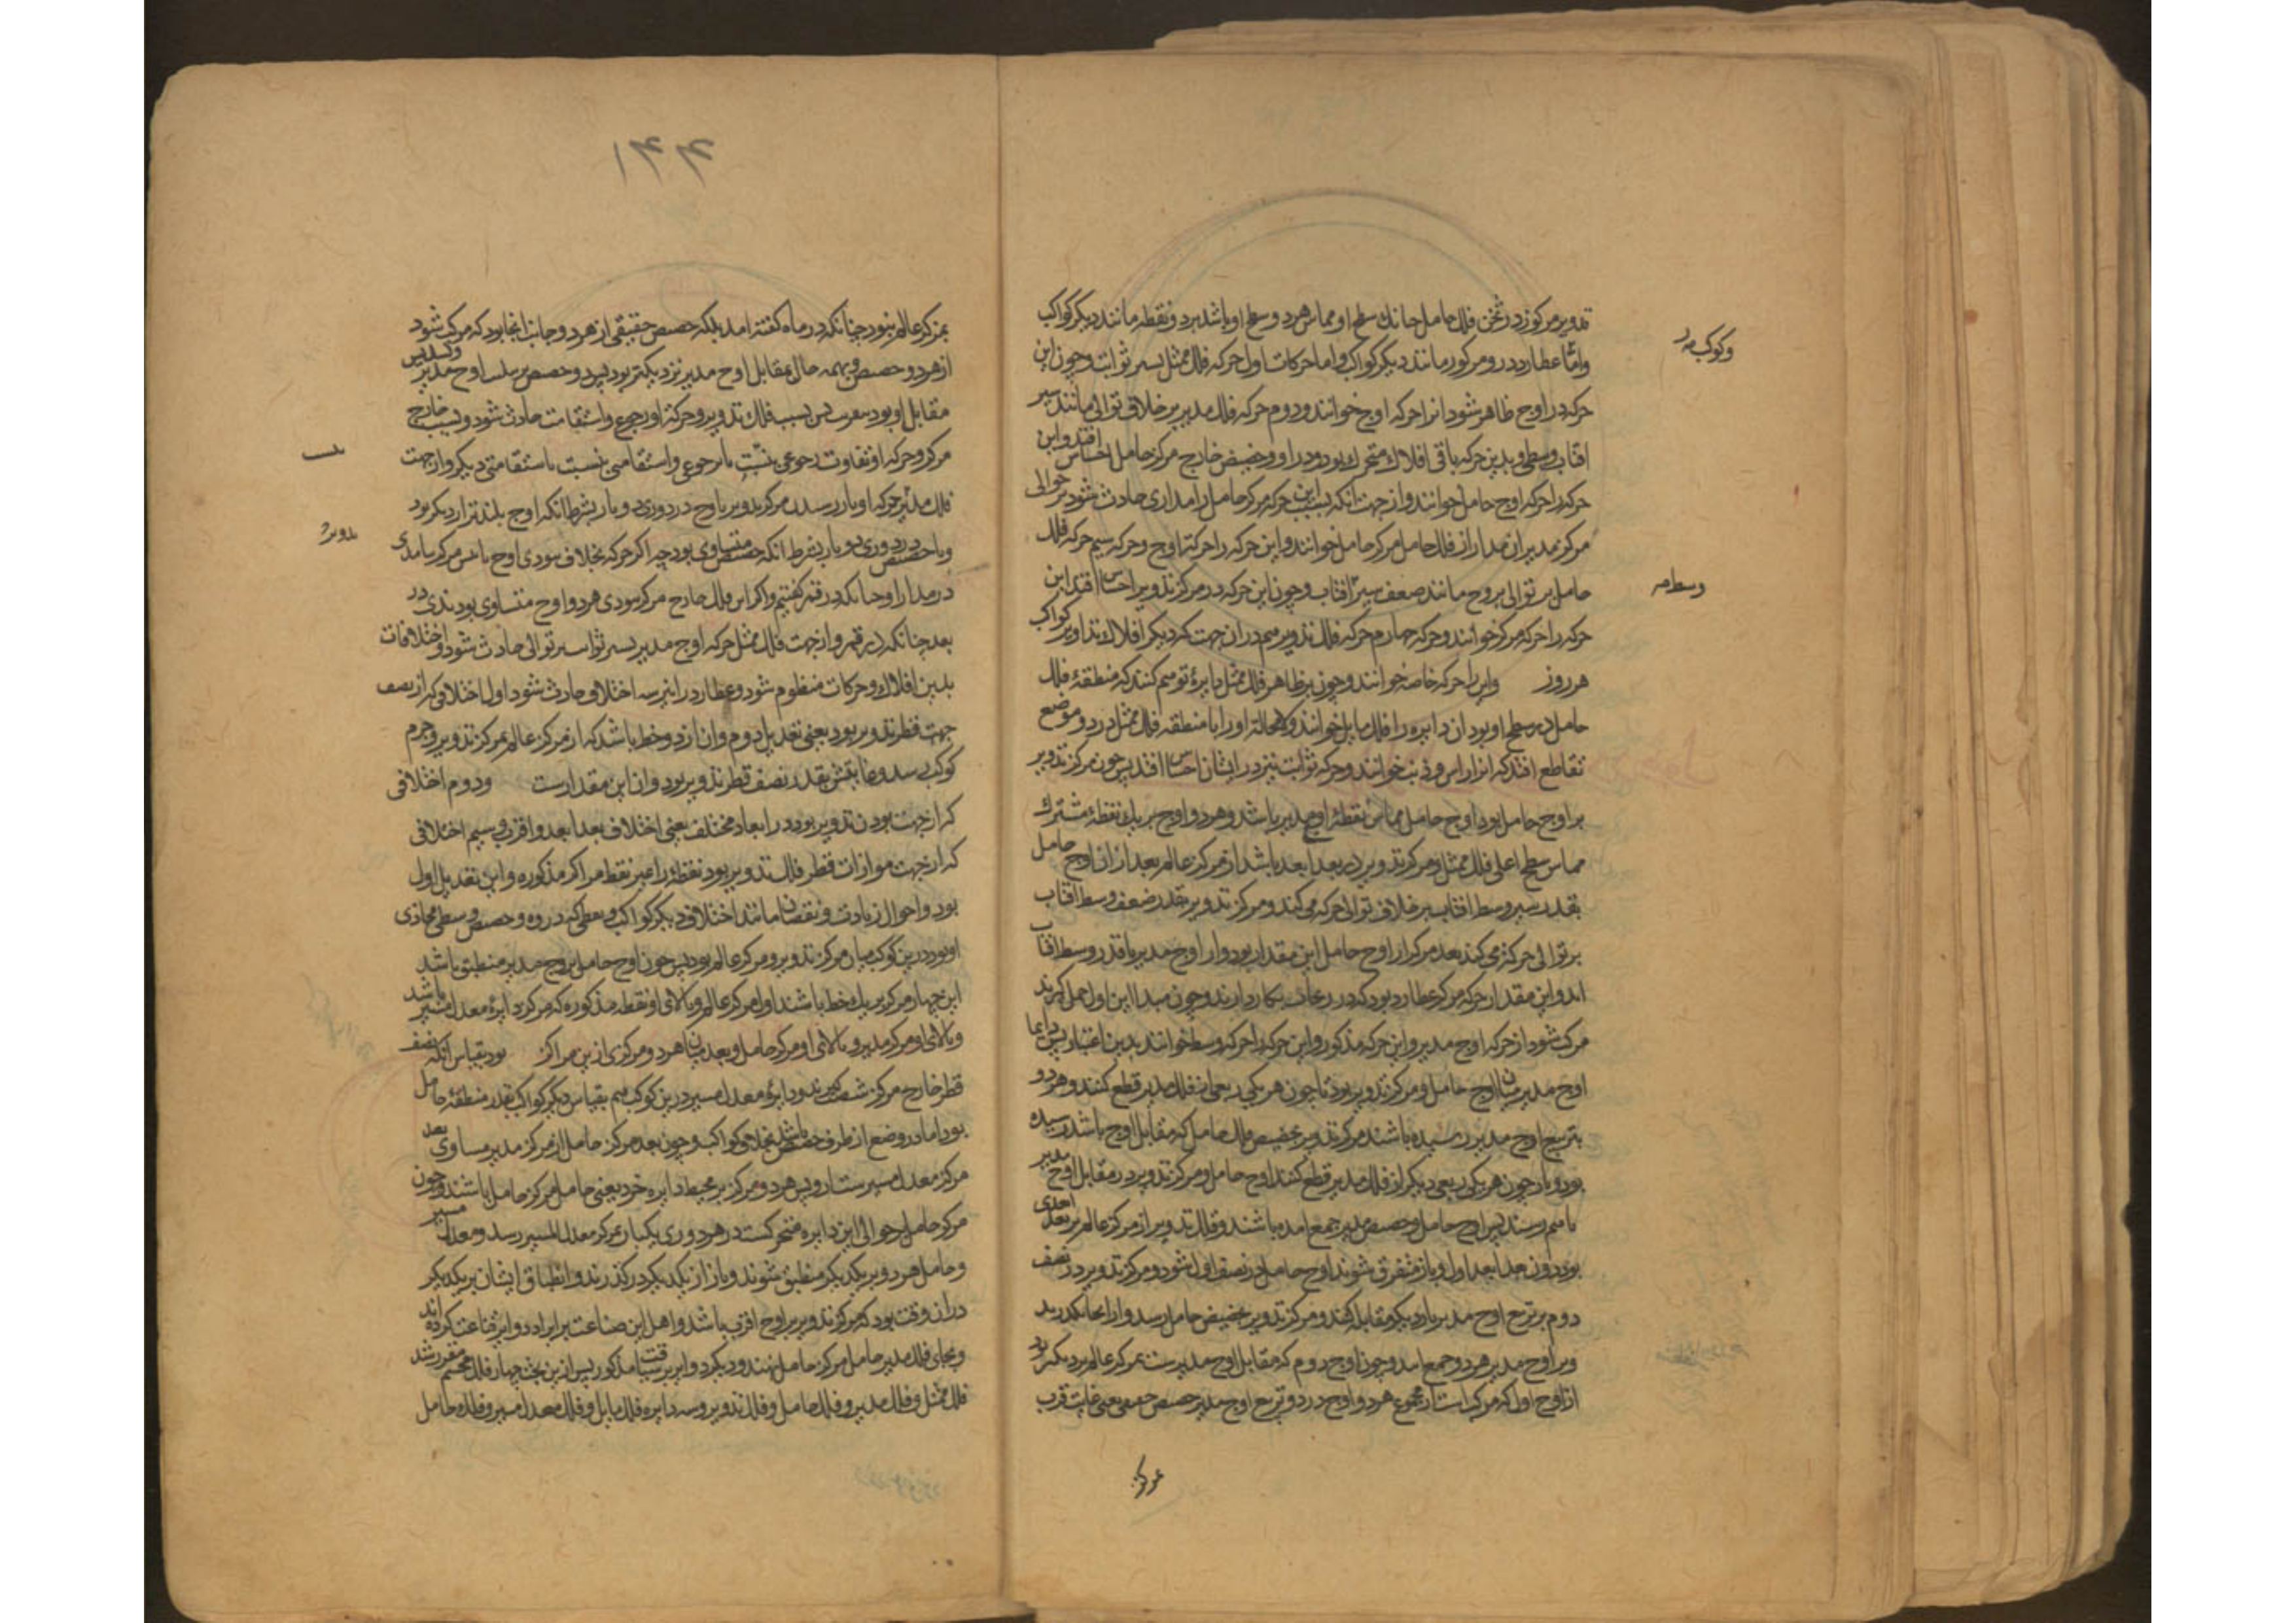 تدویر مرکوز در ثخن فلک حامل چنانک سطح او مماس هر دو سطح او باشد بر دو نقطه مانند دیگر کواکب
وکوکب
واما عطارد درو مرکوز مانند دیگر کواکب واما حرکات اول حرکه فلک ممثل بسیر ثوابت وچون این
حرکه در اوج ظاهر شود انرا حرکه اوج خوانند ودوم حرکه فلک مدیر بر خلاف توالی مانند سیر
افتاب وسطی وبدین حرکه باقی افلاک متحرک بود ودر اوج وحضیض خارج مرکز حامل احساس افتد واین
حرکه را حرکه اوج حامل خوانند واز جهت انکه بسبب این حرکه مرکز حامل را مداری حادث شود بر حوالی
مرکز مدیر ان مدار از فلک حامل مرکز حامل خوانند واین حرکه را حرکة اوج وحرکه سیم حرکه فلک
حامل بر توالی بروج مانند ضعف سیر افتاب وچون این حرکه در مرکز تدویر احساس افتد این
وسط
حرکه را حرکه مرکز خوانند وحرکه چهارم حرکه فلک تدویر هم در ان جهت که دیگر افلاک تداویر کواکب
هر روز واین را حرکه خاصه خوانند وچون بر ظاهر فلک ممثل دایرهٔ توهم کنند که منطقهٔ فلک
حامل در سطح او بود ان دایره را فلک مایل خوانند ولامحاله او را با منطقه فلک ممثل در دو موضع
تقاطع افتد که انرا راس وذنب خوانند وحرکه ثوابت نیز در ایشان احساس افتد پس چون مرکز تدویر
بر اوج حامل بود اوج حامل مماس نقطهٔ اوج مدیر باشد وهر دو اوج بر یک نقطهٔ مشترک
مماس سطح اعلی فلک ممثل ومرکز تدویر در بعد ابعد باشد از مرکز عالم بعد از ان اوج حامل
بقدر سیر وسط افتاب بر خلاف توالی حرکه می کند ومرکز تدویر بقدر ضعف وسط افتاب
بر توالی حرکه می کند بعد مرکز از اوج حامل این مقدار بود واز اوج مدیر باقدر وسط افتاب
اید واین مقدار حرکه مرکز عطارد بود که در بکار دارند وچون مبدا این اول حمل کیرند
مرکب شود از حرکه اوج مدیر واین حرکه مذکور واین حرکه را حرکه وسط خوانند بدین اعتبار پس دایما
اوج مدیر میان اوج حامل ومرکز تدویر بود تا چون هر یکی ربعی از فلک مدیر قطع کنند وهر دو
بتربیع اوج مدیر رسیده باشند مرکز تدویر بحضیض فلک حامل که مقابل اوج باشد رسیده
بود وباز چون هر یکی ربعی دیگر از فلک مدیر قطع کنند اوج حامل ومرکز تدویر در مقابل اوج مدیر
باهم رسند پس اوج حامل وحضیض مدیر جمع امده باشند وفلک تدویر از مرکز عالم بر بعد ابعدی
بود دون بعد ابعد اول وباز متفرق شوند اوج حامل در نصف اول شود ومرکز تدویر در نصف
دوم بر تربیع اوج مدیر بار دیگر مقابله کنند ومرکز تدویر بحضیض حامل رسد واز انجا بگذرند
وبر اوج مدیر هر دو جمع ایند وچون اوج دوم که مقابل اوج مدیرست بمرکز عالم نزدیکتر بود
از اوج اول که مرکب است از مجموع هر دو اوج در دو تربیع اوج مدیر حضیض حقیقی یعنی غایت قرب
بمرکز
۱۴۴
بمرکز عالم نبود چنانکه در ماه گفته امد بلکه حضیض حقیقی از هر دو جانب انجا بود که مرکب شود
از هر دو حضیض وبهمه حال بمقابل اوج مدیر نزدیکتر بود پس دو حضیض بر تسدیس اوج مدیر
مقابل او بود پس بسبب فلک تدویر وحرکة او رجوع واستقامت حادث شود وبسبب خارج
مرکز وحرکه او تفاوت رجوعی نسبت با رجوعی واستقامتی نسبت با استقامتی دیگر واز جهت
فلک مدیر حرکه او باز رسیدن مرکز تدویر باوج در دوری دو بار بشرط انکه اوج بلندتر از دیگر بود
وباحضیض در دوری دو بار بشرط انکه حضیض متساوی بود چه اگر حرکه بخلاف بودی اوج با مرکز نیامدی
در مدار او چنانکه در قمر گفتیم واگر این فلک خارج مرکز نبودی هر دو اوج متساوی بودندی در
بعد چنانکه در قمر واز جهت فلک ممثل حرکه اوج مدیر بسیر ثوابت بر توالی حادث شود واختلافات
بدین افلاک وحرکات منظوم شود وعطارد را نیز سه اختلاف حادث شود اول اختلافی که از نصف
جهت قطر تدویر بود یعنی تعدیل دوم وان از دو خط باشد که از مرکز عالم بمرکز تدویر وجرم
کوکب رسد وغایتش بقدر نصف قطر تدویر بود وان این مقدارست ودوم اختلافی
که از جهت بودن تدویر بود در ابعاد مختلف یعنی اختلاف بعد ابعد واقرب وسیم اختلافی
که از جهت موازات قطر فلک تدویر بود نقطهٔ را غیر نقط مراکز مذکوره واین تعدیل اول
بود واحوال زیادت ونقصان مانند اختلاف دیگر کواکب ونقطهٔ که ذروه وحضیض وسطی محاذی
او بود درین کوکب میان مرکز تدویر ومرکز عالم بود پس چون اوج حامل بر اوج مدیر منطبق باشد
این چهار مرکز بر یک خط باشند اول مرکز عالم وبالای او نقطه مذکوره که مرکز دایرهٔ معدل مسیر باشد
وبالای او مرکز مدیر وبالای او مرکز حامل وبعد میان هر دو مرکزی ازین مراکز بود بقیاس انکه نصف
قطر خارج مرکز شصت گیرند ودایرهٔ معدل مسیر درین کوکب هم بقیاس دیگر کواکب بقدر منطقهٔ حامل
بود اما در وضع از طرف حضیض باشد بخلاف کواکب وچون بعد مرکز حامل از مرکز مدیر مساوی بعد
مرکز معدل مسیر ست ازو پس هر دو مرکز بر محیط دایره خرد یعنی حامل مرکز حامل باشند وچون
مرکز حامل بر حوالی این دایره متحرکست در هر دوری یکبار بمرکز معدل المسیر رسد ومعدل مسیر
وحامل هر دو بر یکدیگر منطبق شوند وباز از یکدیگر در گذرند وانطباق ایشان بر یکدیگر
در ان وقت بود که مرکز تدویر بر اوج اقرب باشد واهل این صناعت بر ایراد دوایر قناعت کرده اند
وبجای فلک مدیر حامل مرکز حامل نهند ودیگر دوایر بر سیاقت مذکور پس ازین بحث چهار فلک مجسم مقرر شد
فلک ممثل وفلک مدیر وفلک حامل وفلک تدویر وسه دایره فلک مایل وفلک معدل مسیر وفلک حامل